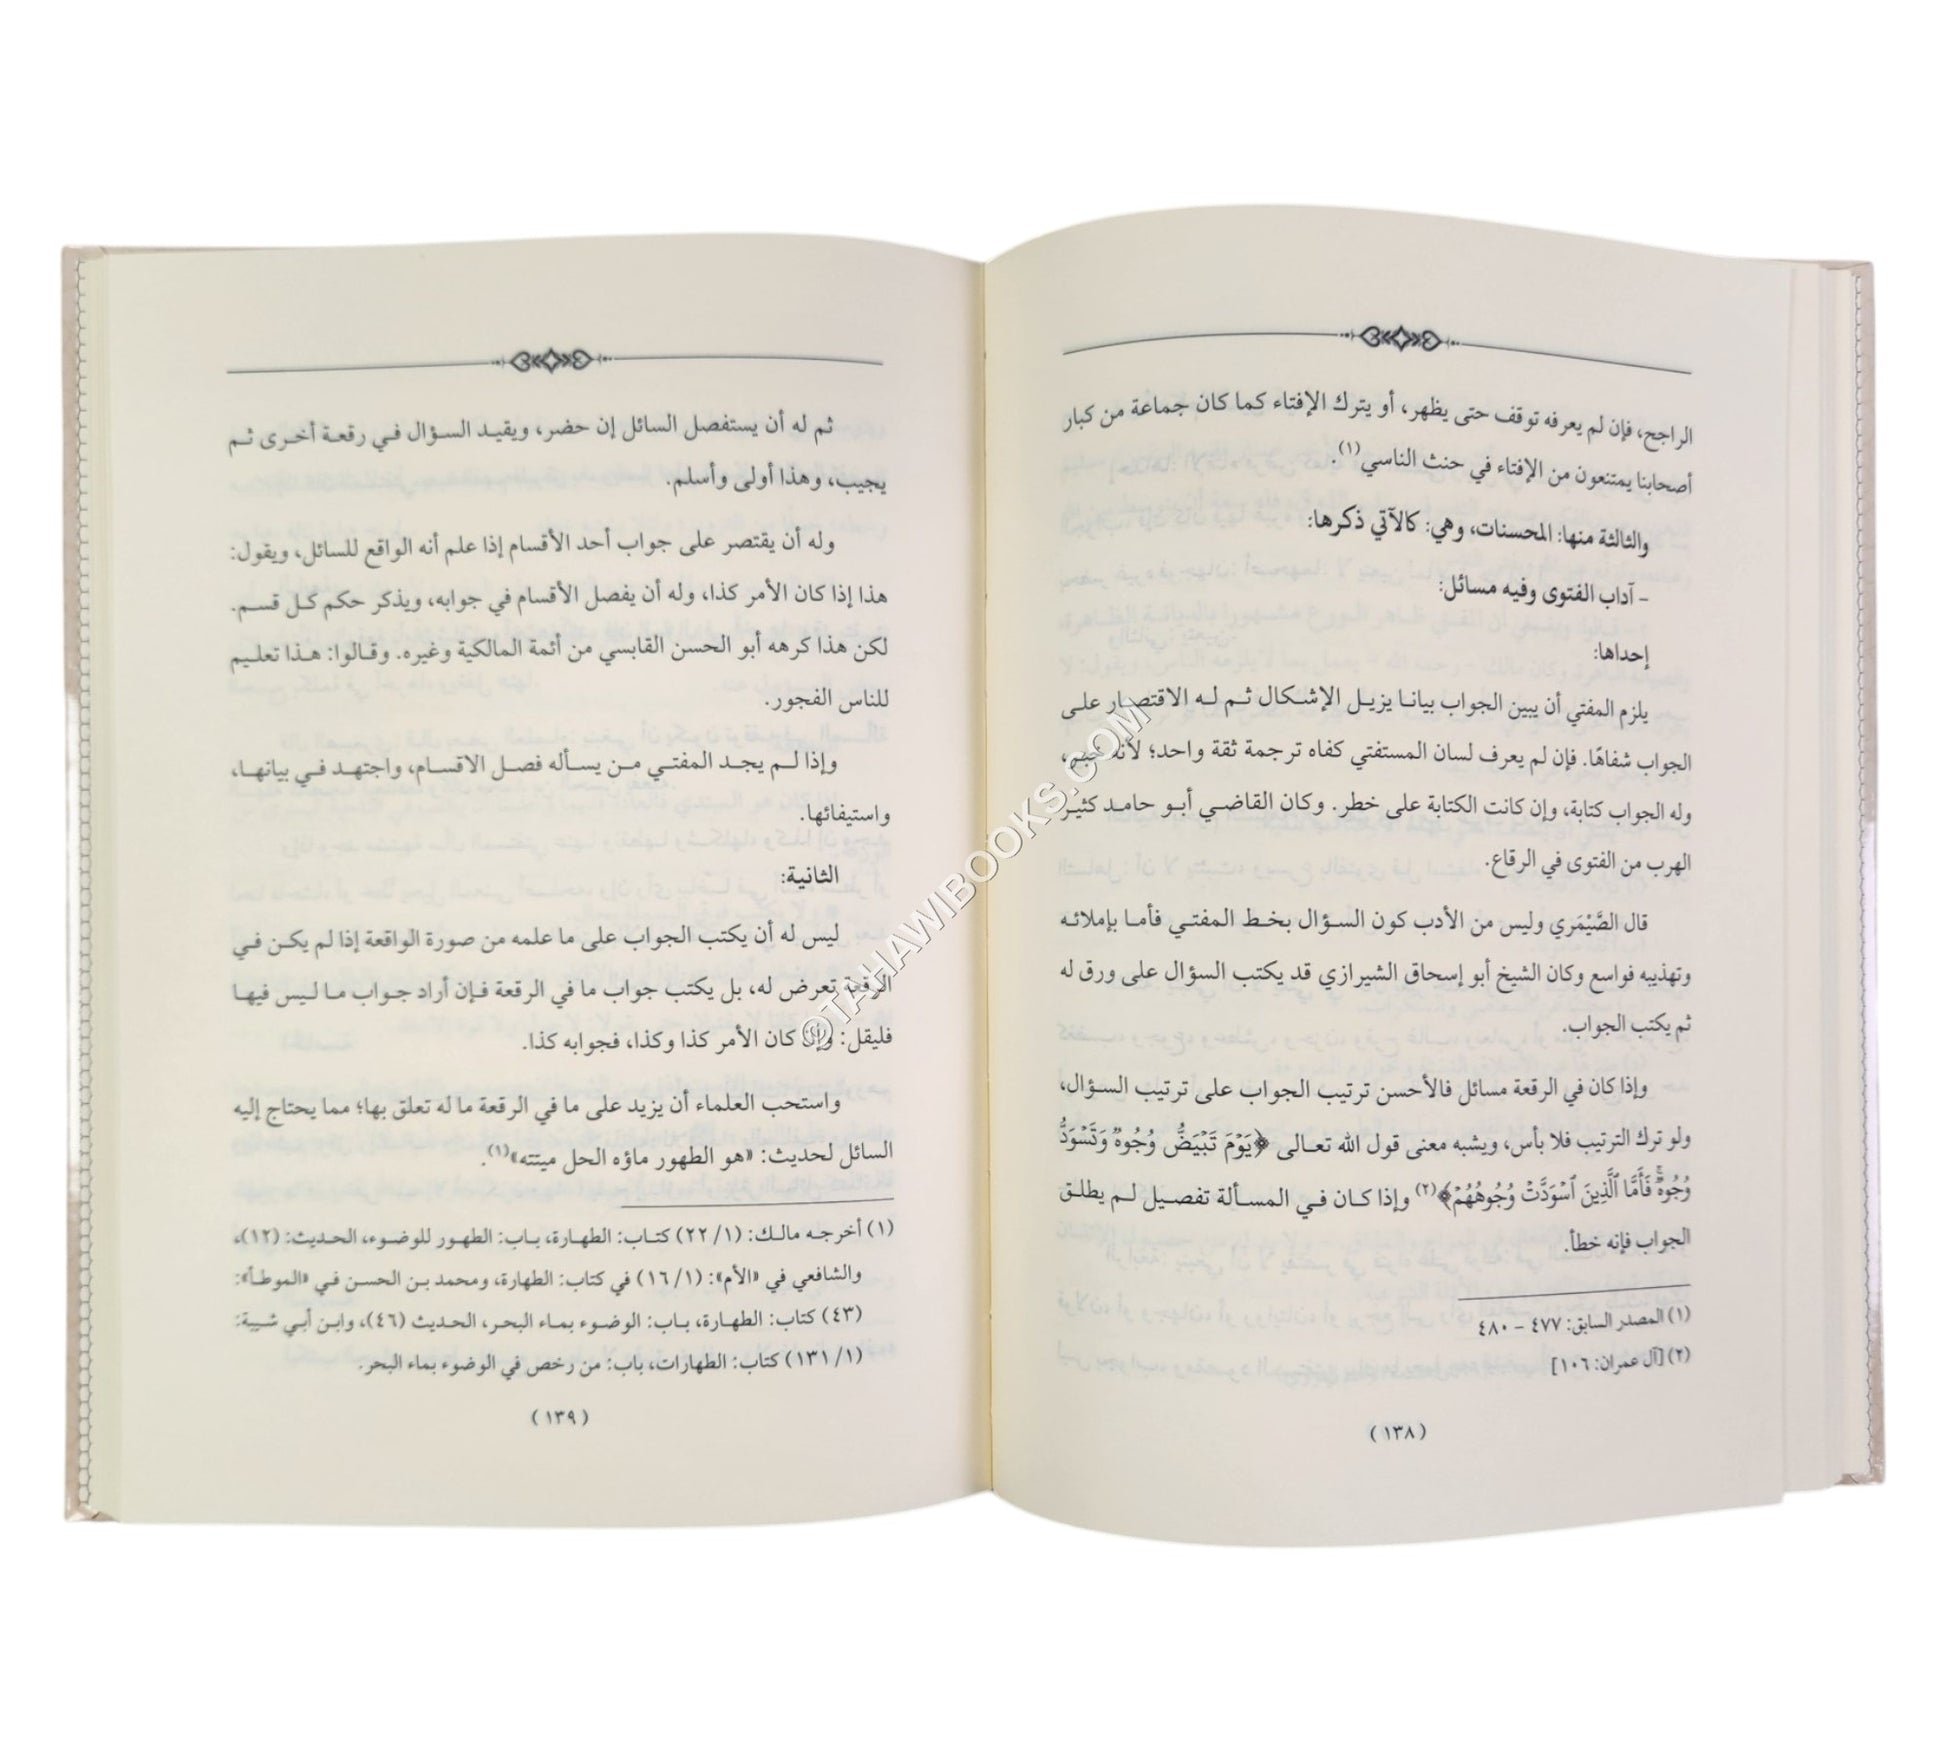 الراجح، فإن لم يعرفه توقف حتى يظهر، أو يترك الإفتاء كما كان جماعة من كبار
أصحابنا يمتنعون من الإفتاء في حنث الناسي(١).
والثالثة منها: المحسنات، وهي: كالآتي ذكرها:
- آداب الفتوى وفيه مسائل:
إحداها:
يلزم المفتي أن يبين الجواب بيانا يزيل الإشكال ثم له الاقتصار على
الجواب شفاهًا. فإن لم يعرف لسان المستفتي كفاه ترجمة ثقة واحد؛ لأنه خبر،
وله الجواب كتابة، وإن كانت الكتابة على خطر. وكان القاضي أبو حامد كثير
الهرب من الفتوى في الرقاع.
قال الصَّيْمَري وليس من الأدب كون السؤال بخط المفتي فأما بإملائه
وتهذيبه فواسع وكان الشيخ أبو إسحاق الشيرازي قد يكتب السؤال على ورق له
ثم يكتب الجواب.
وإذا كان في الرقعة مسائل فالأحسن ترتيب الجواب على ترتيب السؤال،
ولو ترك الترتيب فلا بأس، ويشبه معنى قول الله تعالى ﴿يَوْمَ تَبْيَضُّ وُجُوهٌ وَتَسْوَدُّ
وُجُوهٌ ۚ فَأَمَّا الَّذِينَ اسْوَدَّتْ وُجُوهُهُمْ﴾(٢) وإذا كان في المسألة تفصيل لم يطلق
الجواب فإنه خطأ.
(١) المصدر السابق: ٤٧٧ - ٤٨٠
(٢) [آل عمران: ١٠٦]
(١٣٨)
ثم له أن يستفصل السائل إن حضر، ويقيد السؤال في رقعة أخرى ثم
يجيب، وهذا أولى وأسلم.
وله أن يقتصر على جواب أحد الأقسام إذا علم أنه الواقع للسائل، ويقول:
هذا إذا كان الأمر كذا، وله أن يفصل الأقسام في جوابه، ويذكر حكم كل قسم.
لكن هذا كرهه أبو الحسن القابسي من أئمة المالكية وغيره. وقالوا: هذا تعليم
للناس الفجور.
وإذا لم يجد المفتي من يسأله فصل الاقسام، واجتهد في بيانها،
واستيفائها.
الثانية:
ليس له أن يكتب الجواب على ما علمه من صورة الواقعة إذا لم يكن في
الرقعة تعرض له، بل يكتب جواب ما في الرقعة فإن أراد جواب ما ليس فيها
فليقل: وإن كان الأمر كذا وكذا، فجوابه كذا.
واستحب العلماء أن يزيد على ما في الرقعة ما له تعلق بها؛ مما يحتاج إليه
السائل لحديث: «هو الطهور ماؤه الحل ميتته»(١).
(١) أخرجه مالك: (١/ ٢٢) كتاب: الطهارة، باب: الطهور للوضوء، الحديث: (١٢)،
والشافعي في «الأم»: (١/ ١٦) في كتاب: الطهارة، ومحمد بن الحسن في «الموطأ»:
(٤٣) كتاب: الطهارة، باب: الوضوء بماء البحر، الحديث (٤٦)، وابن أبي شيبة:
(١/ ١٣١) كتاب: الطهارات، باب: من رخص في الوضوء بماء البحر.
(١٣٩)
©TAHAWIBOOKS.COM